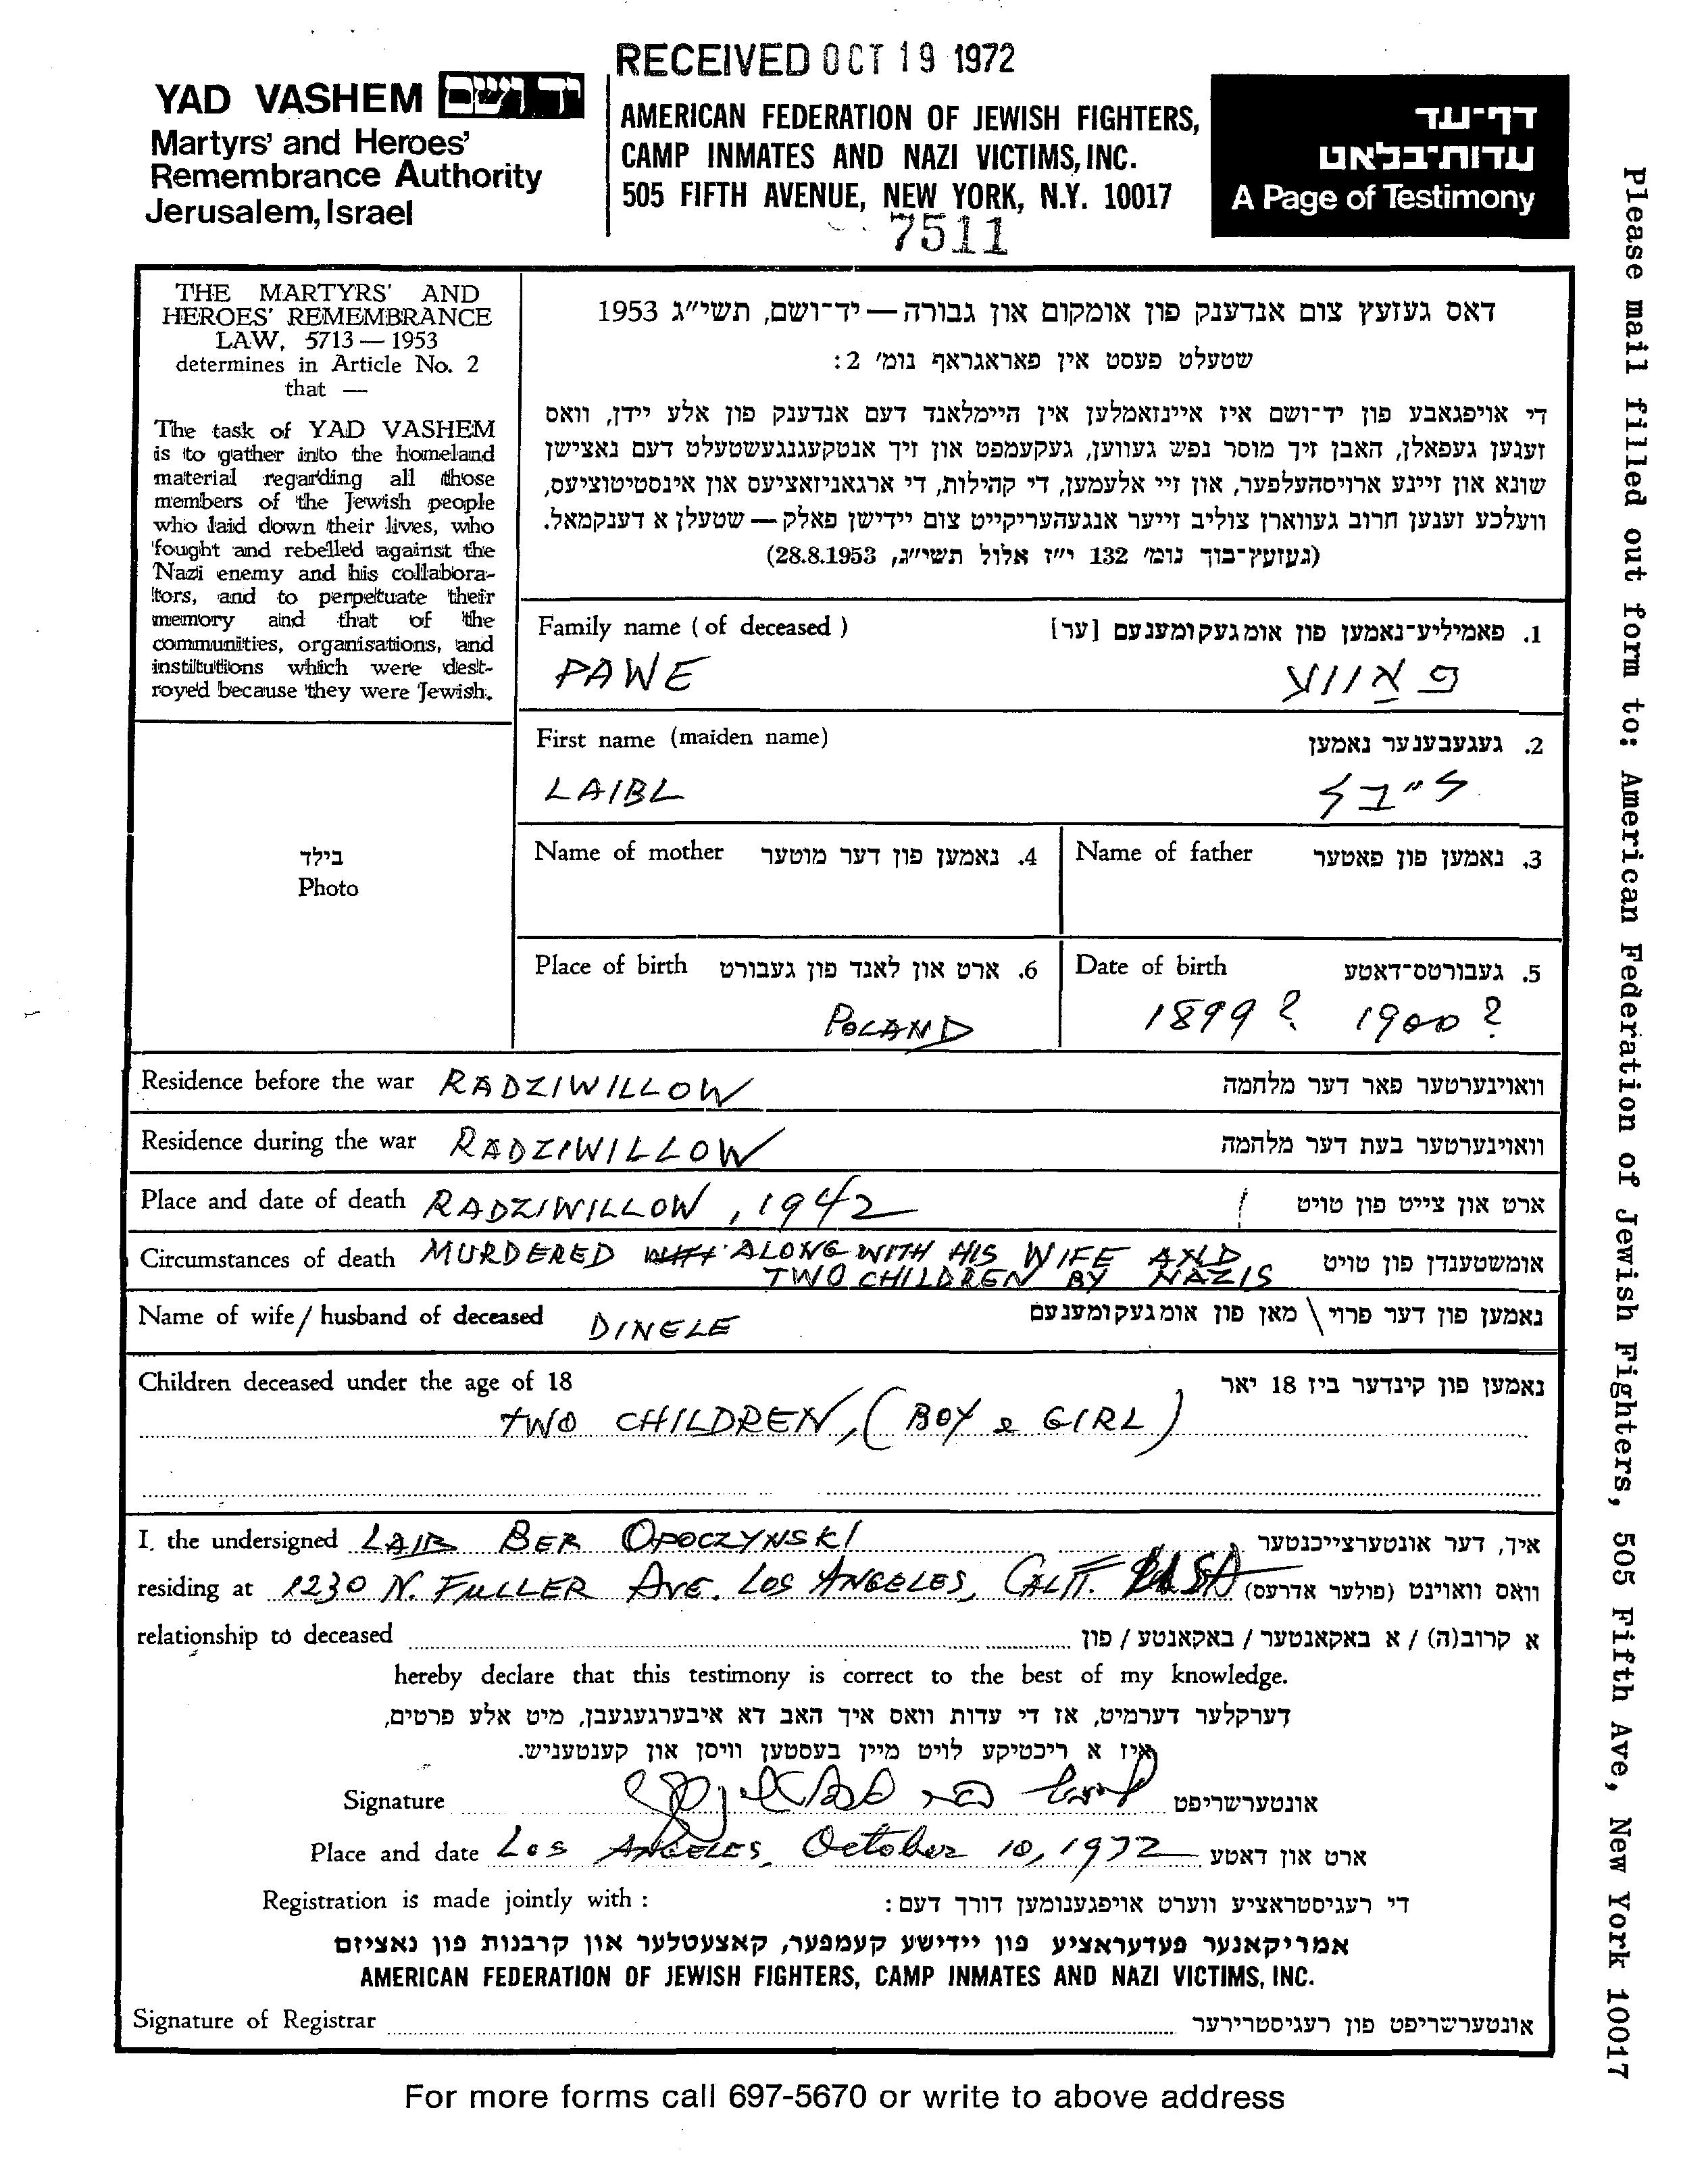 RECEIVED OCT 19 1972
YAD VASHEM יד ושם
Martyrs' and Heroes'
Remembrance Authority
Jerusalem, Israel
AMERICAN FEDERATION OF JEWISH FIGHTERS,
CAMP INMATES AND NAZI VICTIMS, INC.
505 FIFTH AVENUE, NEW YORK, N.Y. 10017
7511
דף־עד
עדות־בלאט
A Page of Testimony
THE MARTYRS' AND
HEROES' REMEMBRANCE
LAW, 5713 — 1953
determines in Article No. 2
that —
The task of YAD VASHEM
is to gather into the homeland
material regarding all those
members of the Jewish people
who laid down their lives, who
fought and rebelled against the
Nazi enemy and his collabora-
tors, and to perpetuate their
memory and that of the
communities, organisations, and
institutions which were dest-
royed because they were Jewish.
דאס געזעץ צום אנדענק פון אומקום און גבורה — יד־ושם, תשי״ג 1953
שטעלט פעסט אין פאראגראף נומ׳ 2:
די אויפגאבע פון יד־ושם איז איינזאמלען אין היימלאנד דעם אנדענק פון אלע יידן, וואס
זענען געפאלן, האבן זיך מוסר נפש געווען, געקעמפט און זיך אנטקעגנגעשטעלט דעם נאצישן
שונא און זיינע ארויסהעלפער, און זיי אלעמען, די קהילות, די ארגאניזאציעס און אינסטיטוציעס,
וועלכע זענען חרוב געווארן צוליב זייער אנגעהעריקייט צום יידישן פאלק — שטעלן א דענקמאל.
(געזעץ־בוך נומ׳ 132 י״ז אלול תשי״ג, 28.8.1953)
Family name (of deceased) 1. פאמיליע־נאמען פון אומגעקומענעם [ער]
PAWE פאווע
First name (maiden name) 2. געגעבענער נאמען
LAIBL לייבל
בילד
Photo
Name of mother 4. נאמען פון דער מוטער Name of father 3. נאמען פון פאטער
Place of birth 6. ארט און לאנד פון געבורט Date of birth 5. געבורטס־דאטע
POLAND 1899? 1900?
Residence before the war RADZIWILLOW וואוינערטער פאר דער מלחמה
Residence during the war RADZIWILLOW וואוינערטער בעת דער מלחמה
Place and date of death RADZIWILLOW, 1942 ארט און צייט פון טויט
Circumstances of death MURDERED ALONG WITH HIS WIFE AND אומשטענדן פון טויט
TWO CHILDREN BY NAZIS
Name of wife / husband of deceased DINELE נאמען פון דער פרוי \ מאן פון אומגעקומענעם
Children deceased under the age of 18 נאמען פון קינדער ביז 18 יאר
TWO CHILDREN, (BOY & GIRL)
I, the undersigned LAIB BER OPOCZYNSKI איך, דער אונטערצייכנטער
residing at 1230 N. FULLER AVE. LOS ANGELES, CALIF. וואס וואוינט (פולער אדרעס)
relationship to deceased א קרוב(ה) / א באקאנטער / באקאנטע / פון
hereby declare that this testimony is correct to the best of my knowledge.
דערקלער דערמיט, אז די עדות וואס איך האב דא איבערגעגעבן, מיט אלע פרטים,
איז א ריכטיקע לויט מיין בעסטען וויסן און קענטעניש.
Signature אונטערשריפט
Place and date LOS ANGELES, October 10, 1972 ארט און דאטע
Registration is made jointly with : די רעגיסטראציע ווערט אויפגענומען דורך דעם:
אמריקאנער פעדעראציע פון יידישע קעמפער, קאצעטלער און קרבנות פון נאציזם
AMERICAN FEDERATION OF JEWISH FIGHTERS, CAMP INMATES AND NAZI VICTIMS, INC.
Signature of Registrar אונטערשריפט פון רעגיסטרירער
For more forms call 697-5670 or write to above address
Please mail filled out form to: American Federation of Jewish Fighters, 505 Fifth Ave, New York 10017